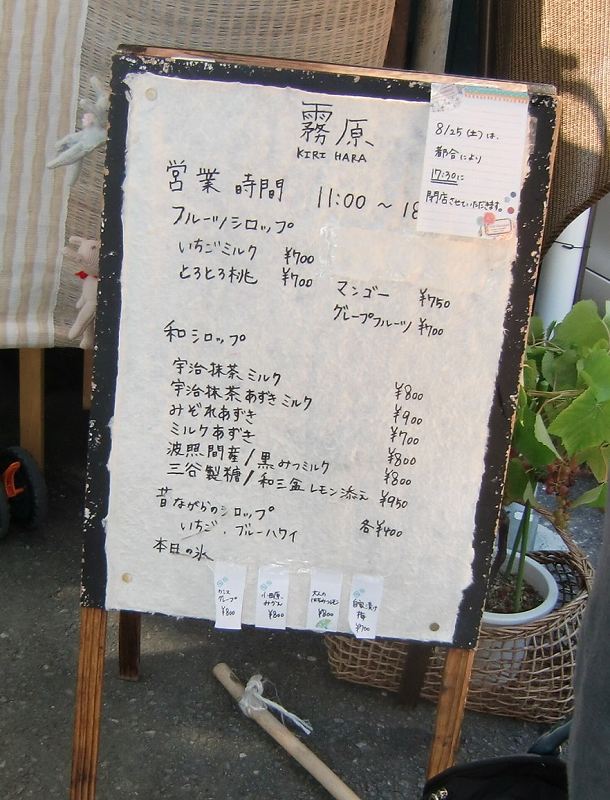 霧原
KIRI HARA
8/25(土)は、
都合により
17:30に
閉店させていただきます。
営業時間 11:00 ～ 18
フルーツシロップ
いちごミルク ¥700
とろとろ桃 ¥700
マンゴー ¥750
グレープフルーツ ¥700
和シロップ
宇治抹茶ミルク ¥800
宇治抹茶あずきミルク ¥900
みぞれあずき ¥700
ミルクあずき ¥800
波照間産/黒みつミルク ¥800
三谷製糖/和三盆レモン添え ¥950
昔ながらのシロップ
いちご・ブルーハワイ 各¥400
本日の氷
カシス
グレープ
¥800
小田原
みかん
¥800
大人の
¥800
自家漬け
梅
¥700